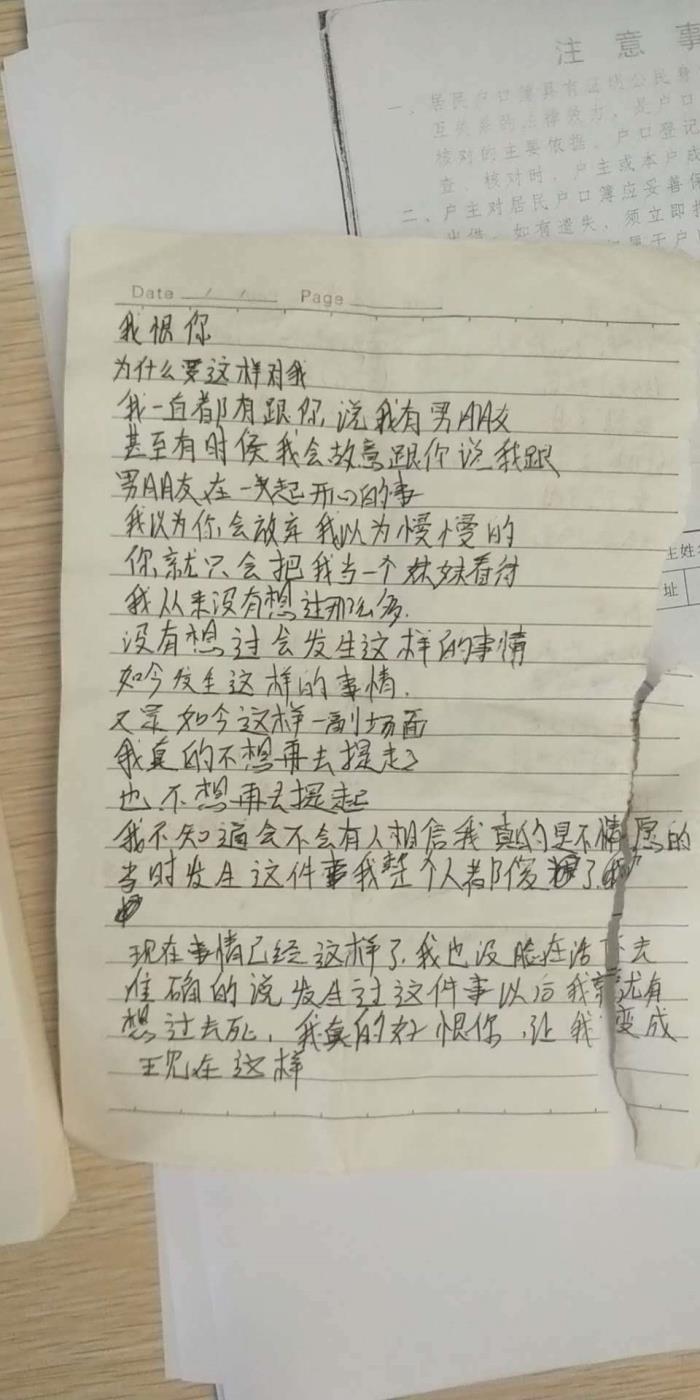 注 意 事
一、居民户口簿具有证明公民身
互关系的法律效力，是户口
核对的主要依据。户口登记
查、核对时，户主或本户成
二、户主对居民户口簿应妥善保
出借。如有遗失，须立即报
属于户
主姓名
址
Date / / Page
我恨你
为什么要这样对我
我一直都有跟你说我有男朋友
甚至有时候我会故意跟你说我跟
男朋友在一起开心的事
我以为你会放弃我以为慢慢的
你就只会把我当一个妹妹看待
我从来没有想过那么多.
没有想过会发生这样的事情
如今发生这样的事情.
又是如今这样一副场面
我真的不想再去提起
也不想再去提起
我不知道会不会有人相信我真的是不情愿的
当时发生这件事我整个人都傻了
现在事情已经这样了.我也没脸在活下去
准确的说发生过这件事以后我就有
想过去死，我真的好恨你，让我变成
现在这样